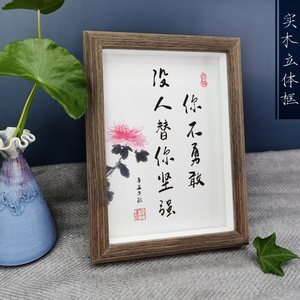 你不勇敢
没人替你坚强
实木立体框